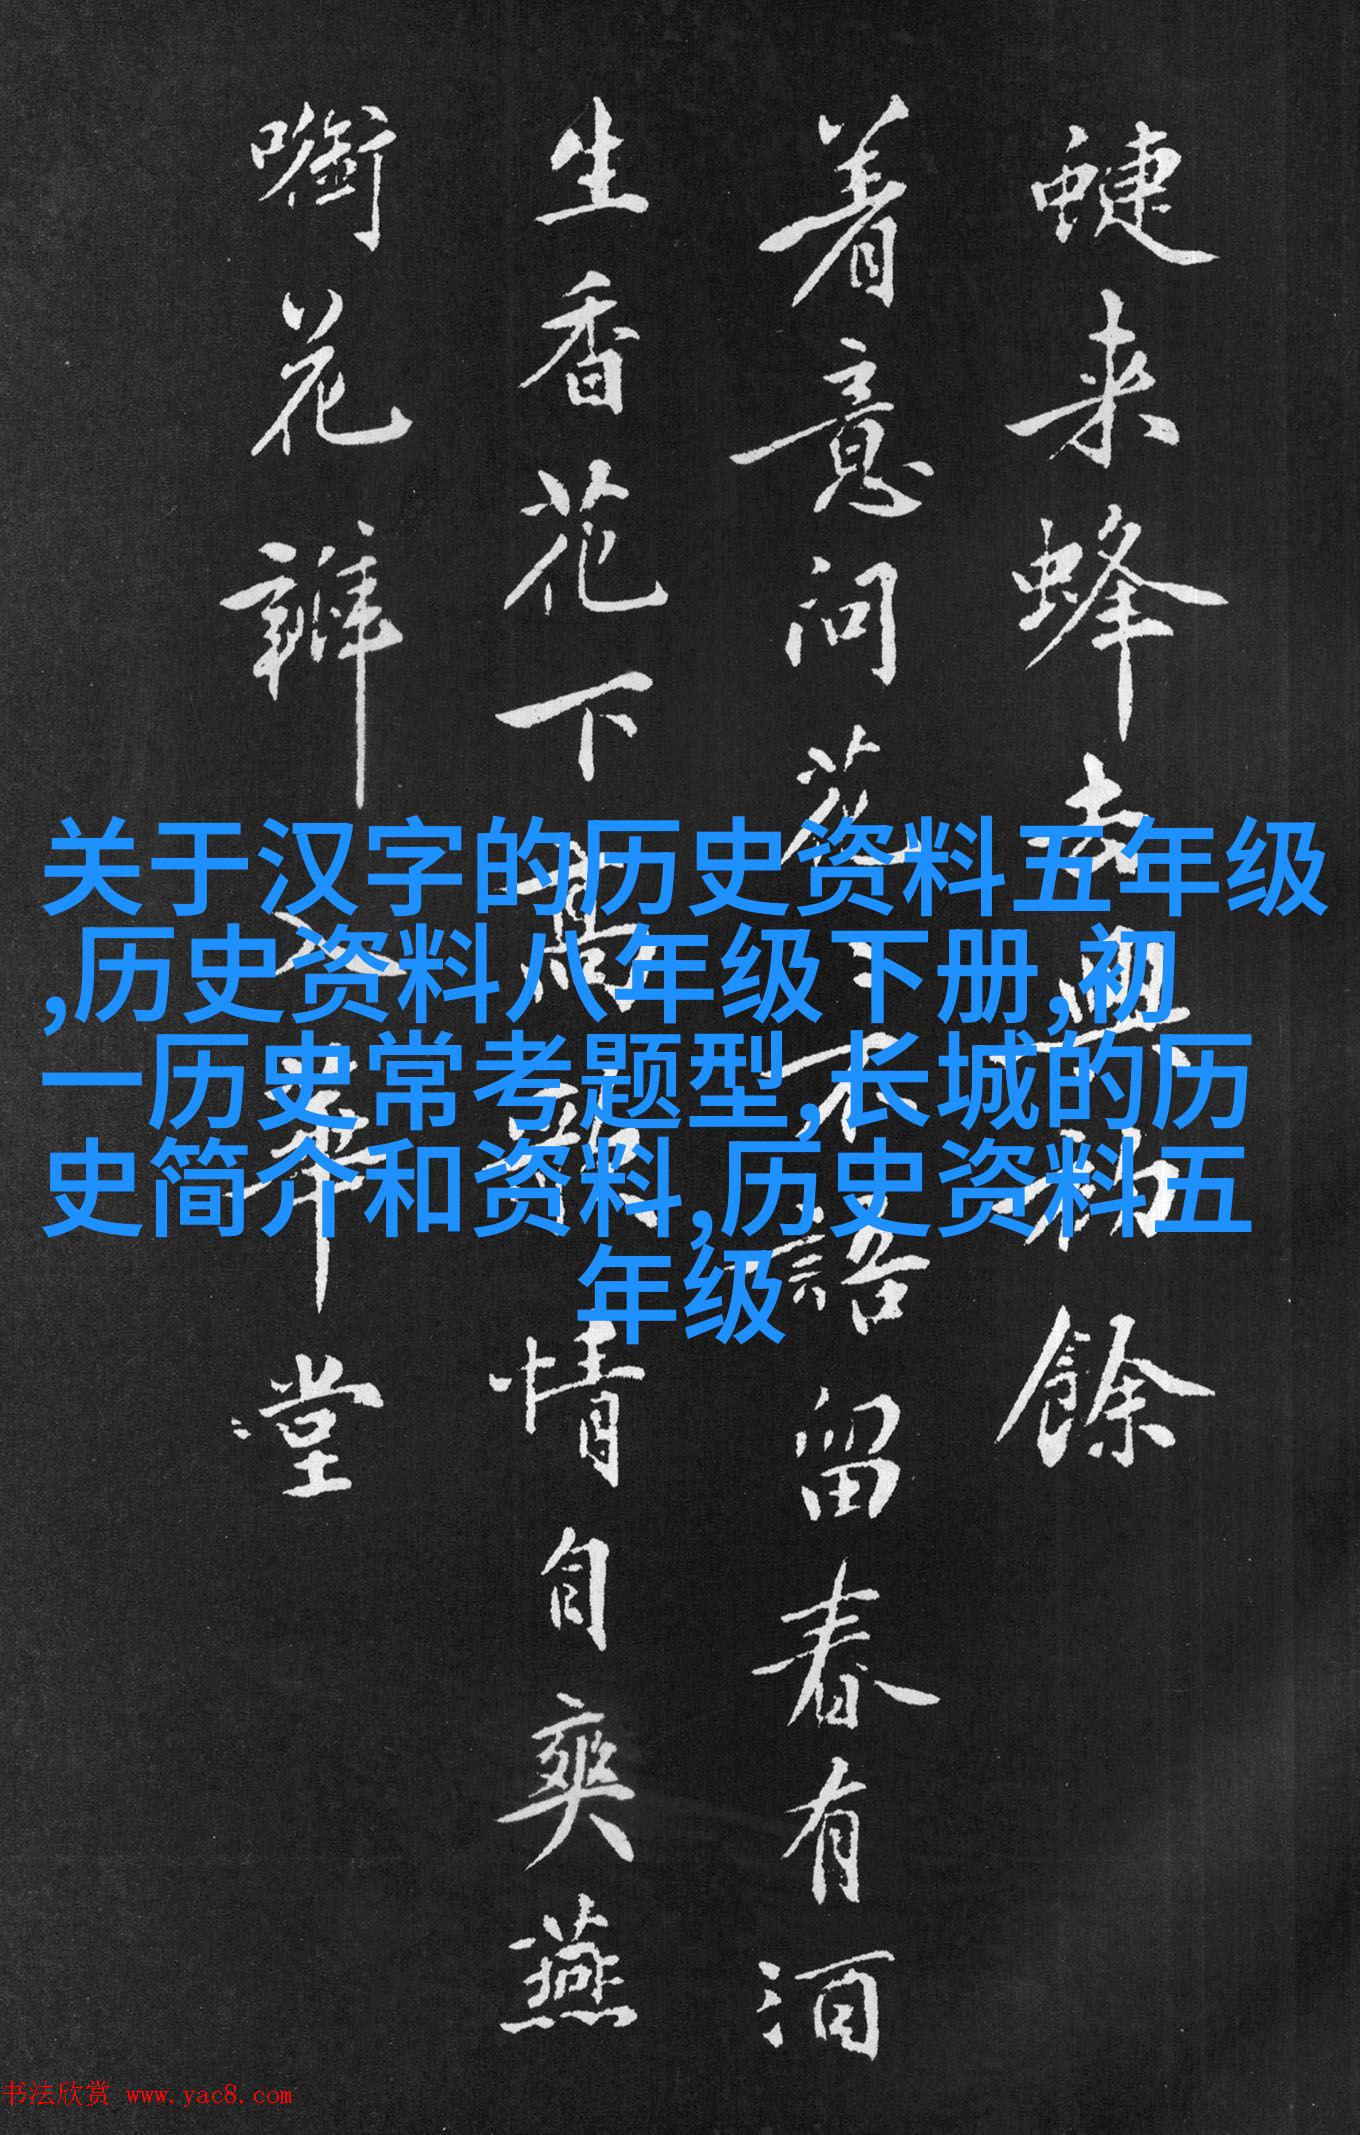 蜨来蜂去興初餘
着意问花〻不語留春有酒
生香花下高情自爽燕
花瓣入草堂
关于汉字的历史资料五年级
,历史资料八年级下册,初
一历史常考题型,长城的历
史简介和资料,历史资料五
年级
书法欣赏 www.yac8.com